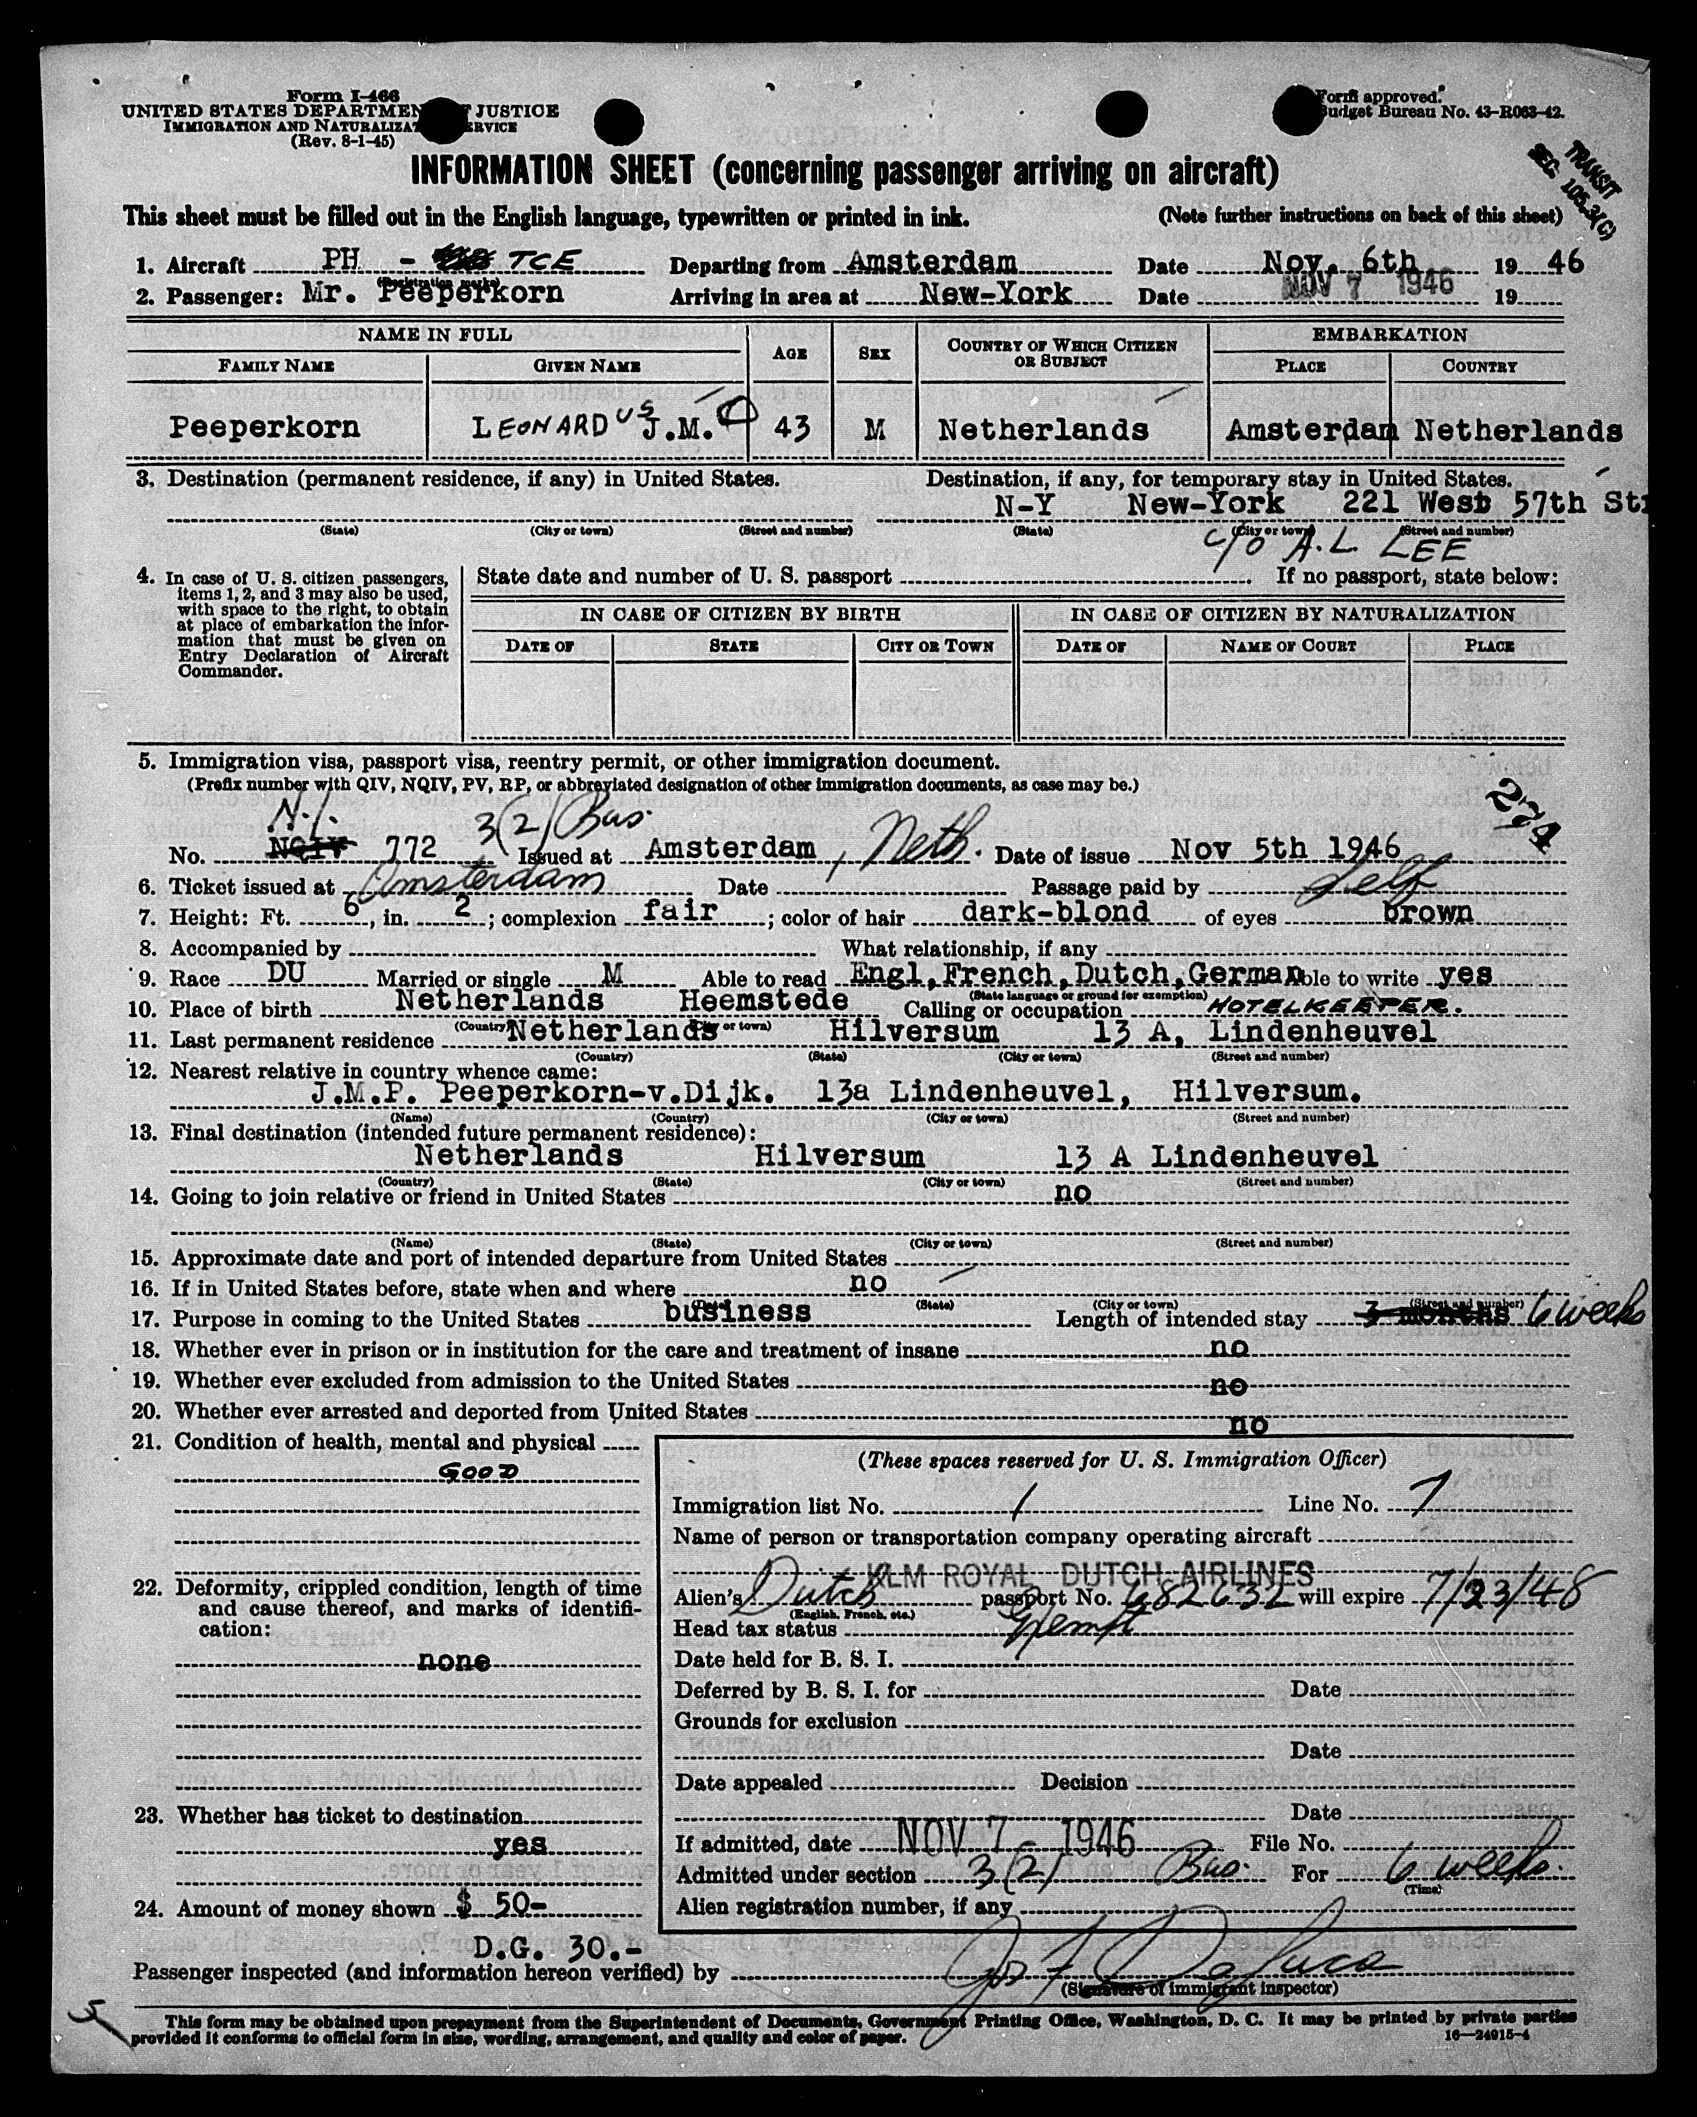 Form I-466
UNITED STATES DEPARTMENT JUSTICE
IMMIGRATION AND NATURALIZAT ERVICE
(Rev. 8-1-45)
Form approved.
Budget Bureau No. 43-R063-42.
TRANSIT
SEC. 105.3(C)
INFORMATION SHEET (concerning passenger arriving on aircraft)
This sheet must be filled out in the English language, typewritten or printed in ink. (Note further instructions on back of this sheet)
1. Aircraft PH - TCE Departing from Amsterdam Date Nov. 6th 19 46
(Registration marks)
2. Passenger: Mr. Peeperkorn Arriving in area at New-York Date NOV 7 1946 19
NAME IN FULL AGE SEX COUNTRY OF WHICH CITIZEN OR SUBJECT EMBARKATION
FAMILY NAME GIVEN NAME PLACE COUNTRY
Peeperkorn LEONARDUS J.M. 43 M Netherlands Amsterdam Netherlands
3. Destination (permanent residence, if any) in United States. Destination, if any, for temporary stay in United States.
N-Y New-York 221 West 57th Str
(State) (City or town) (Street and number) (State) (City or town) (Street and number)
c/o A.L. LEE
4. In case of U. S. citizen passengers, items 1, 2, and 3 may also be used, with space to the right, to obtain at place of embarkation the information that must be given on Entry Declaration of Aircraft Commander.
State date and number of U. S. passport If no passport, state below:
IN CASE OF CITIZEN BY BIRTH IN CASE OF CITIZEN BY NATURALIZATION
DATE OF STATE CITY OR TOWN DATE OF NAME OF COURT PLACE
5. Immigration visa, passport visa, reentry permit, or other immigration document.
(Prefix number with QIV, NQIV, PV, RP, or abbreviated designation of other immigration documents, as case may be.)
274
N.I. 3(2) Bus.
No. NQIV 772 Issued at Amsterdam, Neth. Date of issue Nov 5th 1946
6. Ticket issued at Amsterdam Date Passage paid by Self
7. Height: Ft. 6, in. 2; complexion fair; color of hair dark-blond of eyes brown
8. Accompanied by What relationship, if any
9. Race DU Married or single M Able to read Engl, French, Dutch, German Able to write yes
(State language or ground for exemption)
10. Place of birth Netherlands Heemstede Calling or occupation HOTELKEEPER.
(Country) (City or town)
11. Last permanent residence Netherlands Hilversum 13 A, Lindenheuvel
(Country) (State) (City or town) (Street and number)
12. Nearest relative in country whence came:
J.M.P. Peeperkorn-v.Dijk. 13a Lindenheuvel, Hilversum.
(Name) (Country) (City or town) (Street and number)
13. Final destination (intended future permanent residence):
Netherlands Hilversum 13 A Lindenheuvel
(Country) (State) (City or town) (Street and number)
14. Going to join relative or friend in United States no
(Name) (State) (City or town) (Street and number)
15. Approximate date and port of intended departure from United States
16. If in United States before, state when and where no
(State) (City or town) (Street and number)
17. Purpose in coming to the United States business Length of intended stay 3 months 6 weeks
18. Whether ever in prison or in institution for the care and treatment of insane no
19. Whether ever excluded from admission to the United States no
20. Whether ever arrested and deported from United States no
21. Condition of health, mental and physical
GOOD
22. Deformity, crippled condition, length of time and cause thereof, and marks of identification:
none
23. Whether has ticket to destination
yes
24. Amount of money shown $ 50-
D.G. 30.-
(These spaces reserved for U. S. Immigration Officer)
Immigration list No. 1 Line No. 7
Name of person or transportation company operating aircraft
KLM ROYAL DUTCH AIRLINES
Alien's Dutch passport No. 682632 will expire 7/23/48
(English, French, etc.)
Head tax status Exempt
Date held for B. S. I.
Deferred by B. S. I. for Date
Grounds for exclusion
Date
Date appealed Decision
Date
If admitted, date NOV 7 - 1946 File No.
Admitted under section 3(2) Bus. For 6 weeks.
(Time)
Alien registration number, if any
Passenger inspected (and information hereon verified) by Jos F DeLuca
(Signature of immigrant inspector)
5
This form may be obtained upon prepayment from the Superintendent of Documents, Government Printing Office, Washington, D. C. It may be printed by private parties
provided it conforms to official form in size, wording, arrangement, and quality and color of paper. 16—24915-4